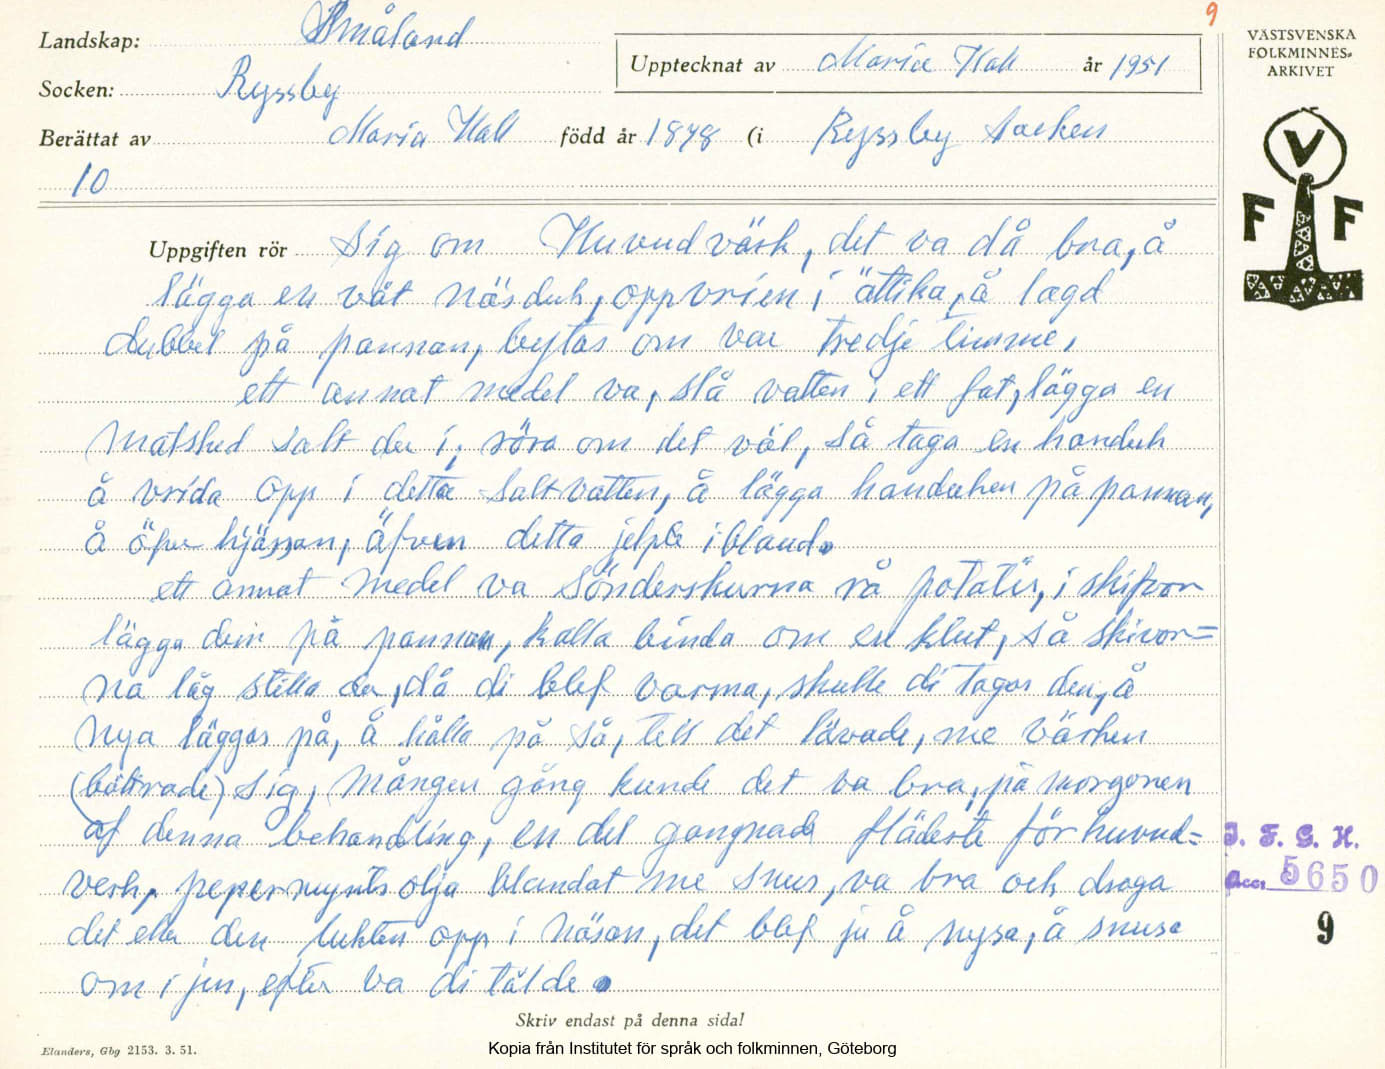 9
Landskap: Småland
VÄSTSVENSKA
FOLKMINNES-
ARKIVET
Upptecknat av Maria Hall år 1951
Socken: Ryssby
Berättat av Maria Hall född år 1878 (i Ryssby Socken
10
V
F F
Uppgiften rör Sig om Huvudvärk, det va då bra, å
lägga en våt näsduk, oppvrien i ättika, å lagd
dubbel på pannan, bytas om var tredje timme,
ett annat medel va, slå vatten i ett fat, lägga en
matsked salt der i, röra om det väl, så taga en handuk
å vrida opp i detta saltvatten, å lägga handuken på pannan,
å öfver hjässan, äfven detta jelpte ibland.
ett annat medel va sönderskurna rå potatis, i skifvor
lägga dem på pannan, kalla binda om en klut, så skivor=
na låg stilla der, då di blef varma, skulle di tagas den, å
nya läggas på, å hålla på så, tels det lävade, me värken
(bättrade) sig, mången gång kunde det va bra, på morgonen
af denna behandling, en del gangnade flädeste för huvud=
verk, pepermynts olja blandat me snus, va bra och draga
det eller den lukten opp i näsan, det blef ju å nysa, å snusa
om i jen, efter va di tålde.
J. F. G. H.
Acc. 5650
9
Skriv endast på denna sida!
Elanders, Gbg 2153. 3. 51.
Kopia från Institutet för språk och folkminnen, Göteborg